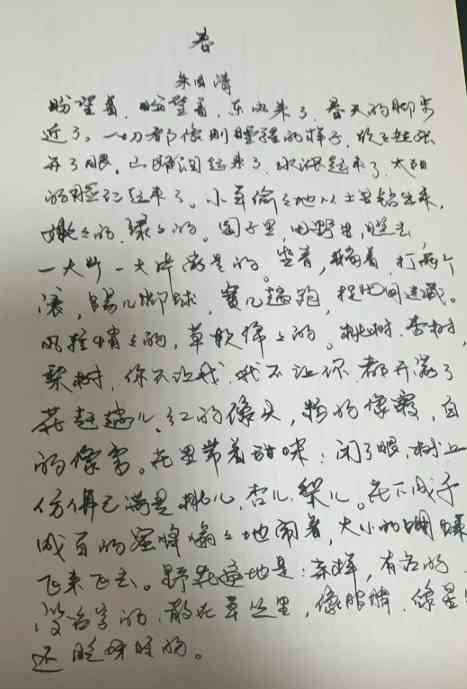 春
朱自清
盼望着,盼望着,东风来了,春天的脚步
近了。一切都像刚睡醒的样子,欣欣然张
开了眼。山朗润起来了,水涨起来了,太阳
的脸红起来了。小草偷々地从土里钻出来,
嫩々的,绿々的。园子里,田野里,瞧去,
一大片一大片满是的。坐着,躺着,打两个
滚,踢几脚球,赛几趟跑,捉几回迷藏。
风轻悄々的,草软绵々的。桃树、杏树、
梨树,你不让我,我不让你,都开满了
花赶趟儿。红的像火,粉的像霞,白
的像雪。花里带着甜味;闭了眼,树上
仿佛已满是桃儿、杏儿、梨儿。花下成千
成百的蜜蜂嗡々地闹着,大小的蝴蝶
飞来飞去。野花遍地是:杂样,有名的,
没名字的,散在草丛里,像眼睛,像星星
还眨呀眨的。